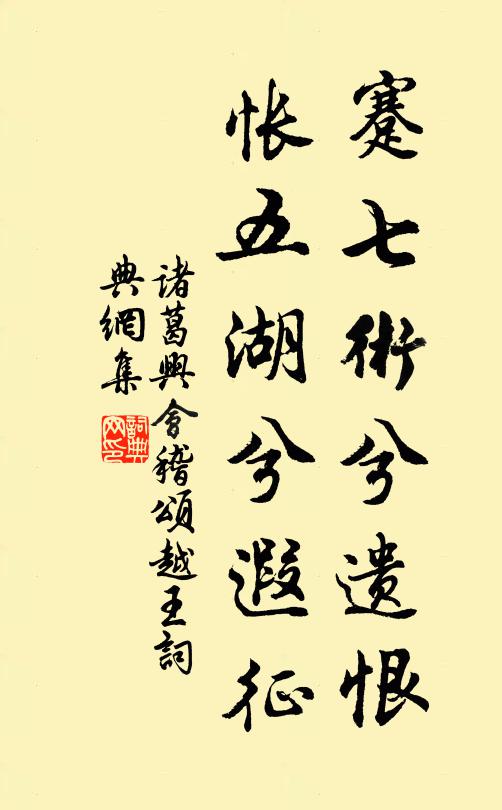 蹇七術兮遗恨
悵五湖兮遐征
諸葛興會稽頌越王詞
典網集
詞典网印